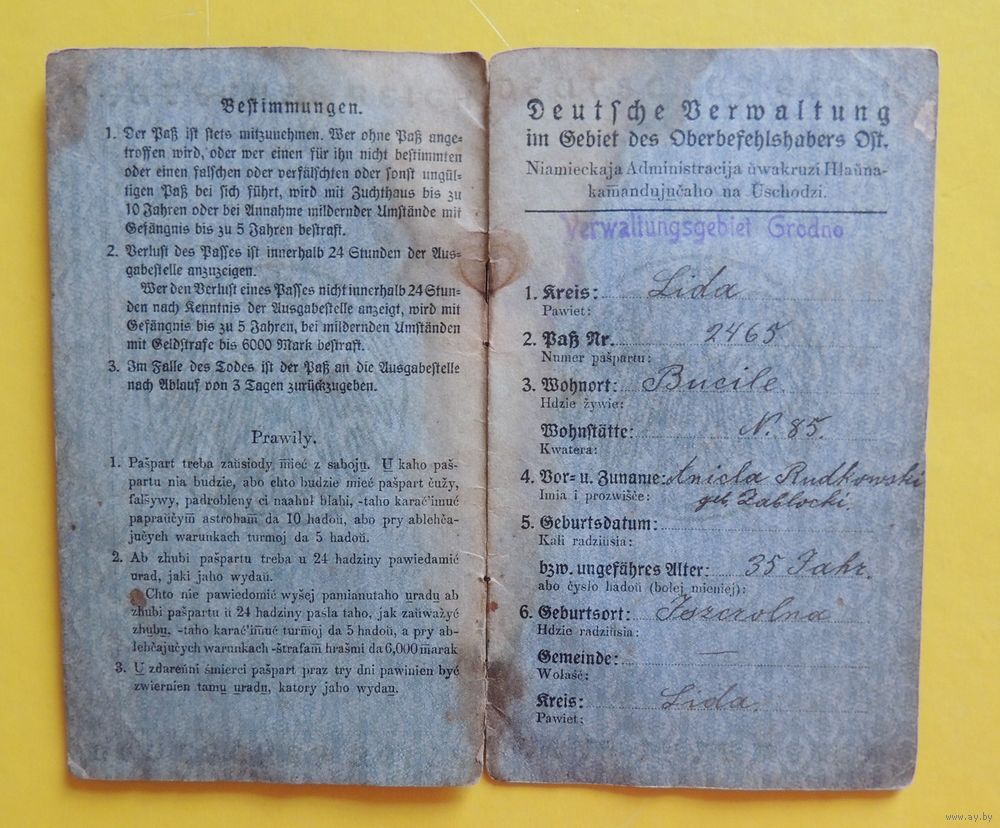 Bestimmungen.
1. Der Paß ist stets mitzunehmen. Wer ohne Paß ange-
troffen wird, oder wer einen für ihn nicht bestimmten
oder einen falschen oder verfälschten oder sonst ungül-
tigen Paß bei sich führt, wird mit Zuchthaus bis zu
10 Jahren oder bei Annahme mildernder Umstände mit
Gefängnis bis zu 5 Jahren bestraft.
2. Verlust des Passes ist innerhalb 24 Stunden der Aus-
gabestelle anzuzeigen.
Wer den Verlust eines Passes nicht innerhalb 24 Stun-
den nach Kenntnis der Ausgabestelle anzeigt, wird mit
Gefängnis bis zu 5 Jahren, bei mildernden Umständen
mit Geldstrafe bis 6000 Mark bestraft.
3. Im Falle des Todes ist der Paß an die Ausgabestelle
nach Ablauf von 3 Tagen zurückzugeben.
Prawiły.
1. Pašpart treba zaŭsiody mieć z saboju. U kaho paš-
partu nia budzie, abo chto budzie mieć pašpart čužy,
falšywy, padrobleny ci naahuł błahi, -taho karać'imuć
papraŭčym astroham da 10 hadoŭ, abo pry ablehča-
jučych warunkach turmoj da 5 hadoŭ.
2. Ab zhubi pašpartu treba u 24 hadziny pawiedamić
urad, jaki jaho wydaŭ.
Chto nie pawiedomić wyšej pamianutaho uradu ab
zhubi pašpartu ŭ 24 hadziny pasla taho, jak zaŭważyć
zhubu, -taho karać'imuć turmoj da 5 hadoŭ, a pry ab-
lehčajučych warunkach -štrafam hrašmi da 6,000 marak
3. U zdarenni śmierci pašpart praz try dni pawinien być
zwiernien tamu uradu, katory jaho wydaŭ.
Deutsche Verwaltung
im Gebiet des Oberbefehlshabers Ost.
Niamieckaja Administracija ŭwakruzi Hłaŭna-
kamandujučaho na Ŭschodzi.
Verwaltungsgebiet Grodno
1. Kreis: Lida
Pawiet:
2. Paß Nr. 2465
Numer pašpartu:
3. Wohnort: Bucile
Hdzie żywie:
Wohnstätte: N. 85.
Kwatera:
4. Vor- u. Zuname: Aniela Rudkowski
Imia i prozwišče: geb. Zablocki.
5. Geburtsdatum:
Kali radziŭsia:
bzw. ungefähres Alter: 35 Jahr.
abo čysło hadoŭ (bolej mieniej):
6. Geburtsort: Iszcrolna
Hdzie radziŭsia:
Gemeinde: —
Wołaść:
Kreis: Lida.
Pawiet:
www.ay.by